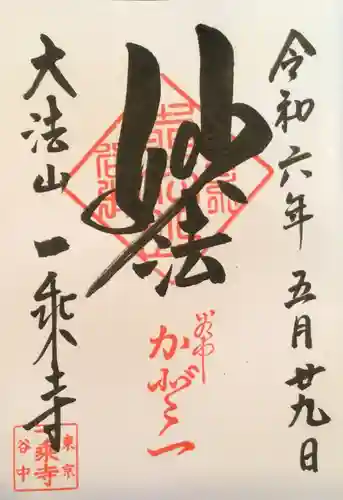 令和六年 五月廿九日
妙法
谷中
かど〻一
大法山 一乗寺
東京
一乗寺
谷中